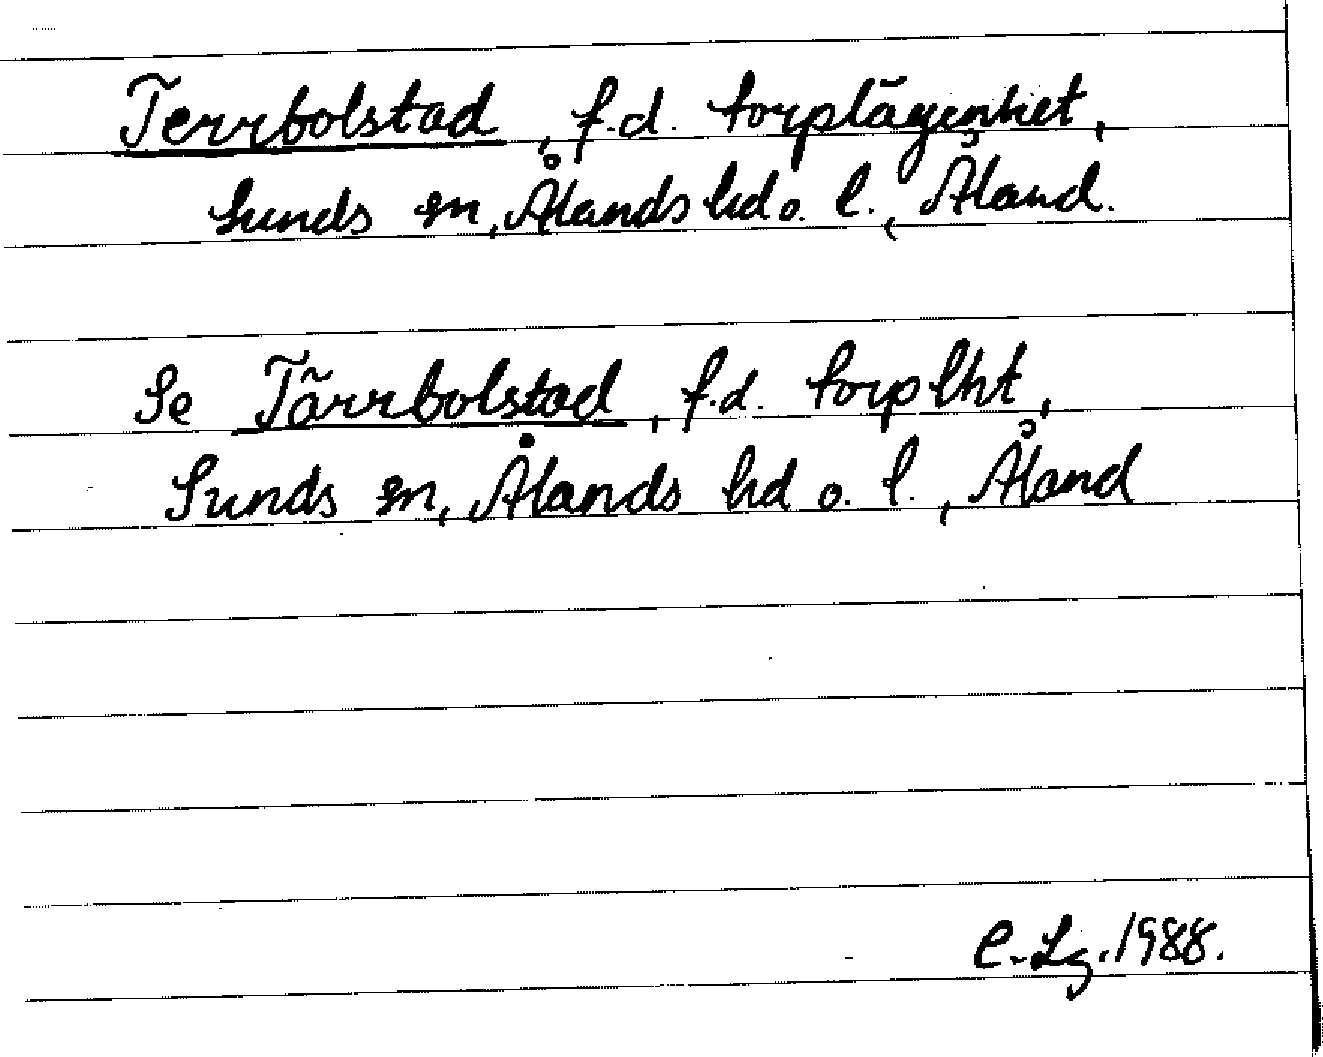 Terrbolstad, f.d. torplägenhet,
Sunds sn, Ålands hd o. l., Åland.
Se Tärrbolstad, f.d. torplht,
Sunds sn, Ålands hd o. l., Åland
C. Lg. 1988.